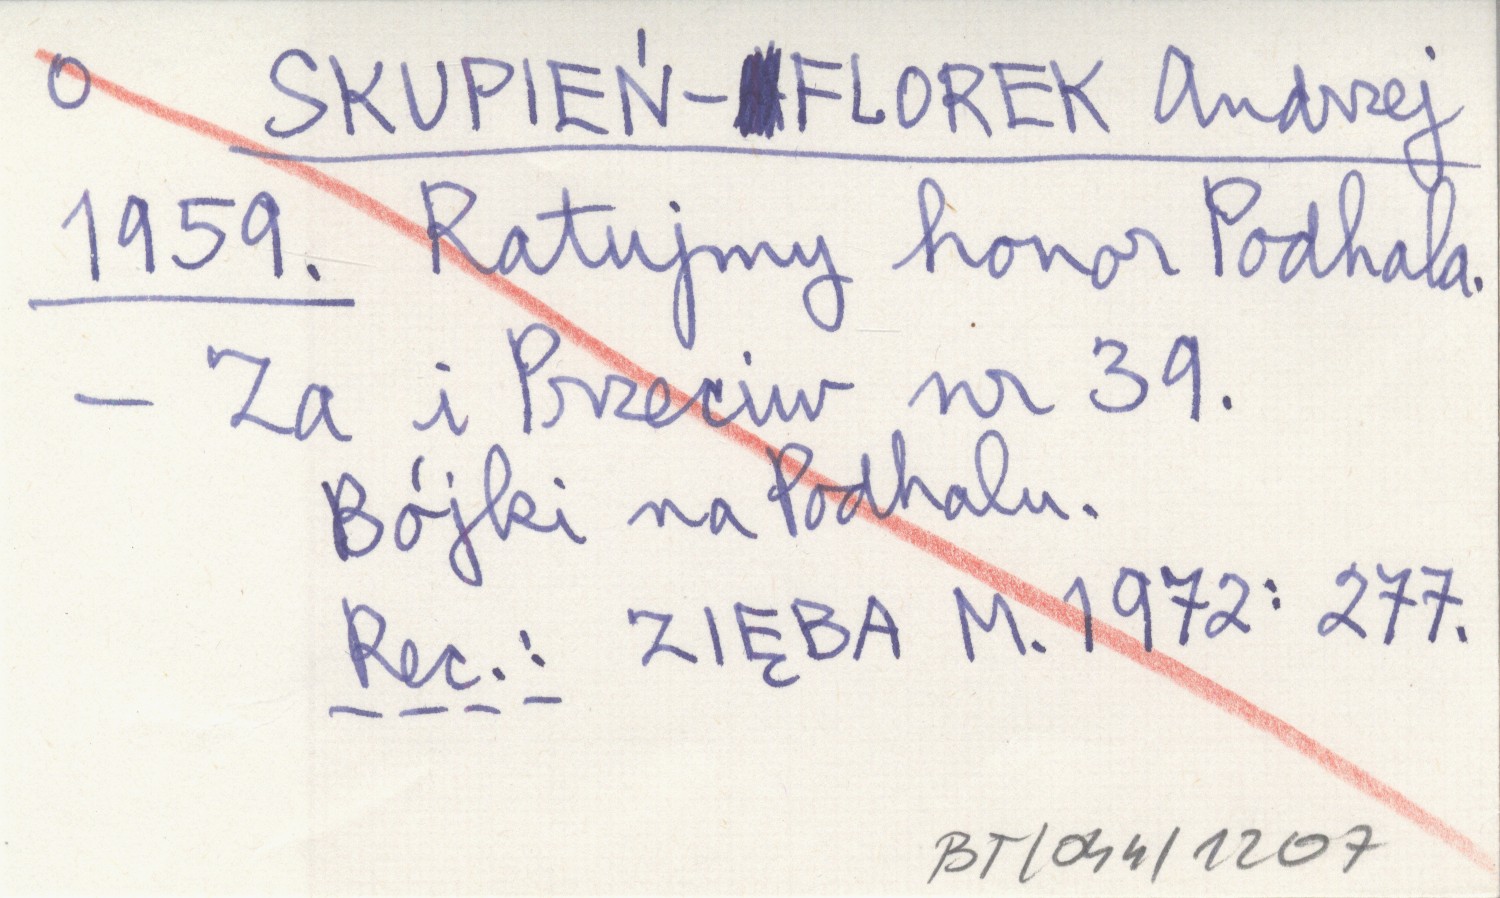 o SKUPIEŃ-FLOREK Andrzej
1959. Ratujmy honor Podhala.
— Za i Przeciw nr 39.
Bójki na Podhalu.
Rec.: ZIĘBA M. 1972: 277.
BT/044/1207